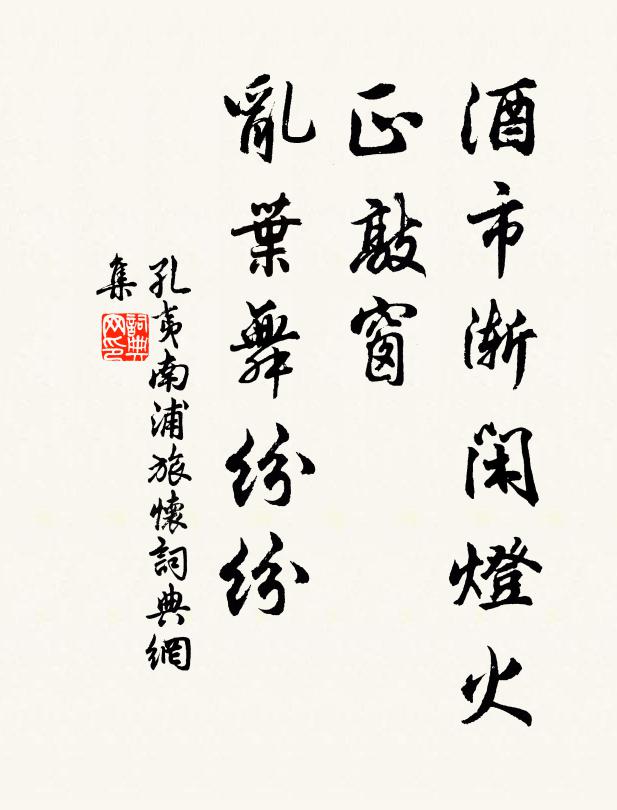 酒市漸閑燈火
正敲窗
亂葉舞紛紛
孔夷南浦旅懷詞典網
集
詞典
网印